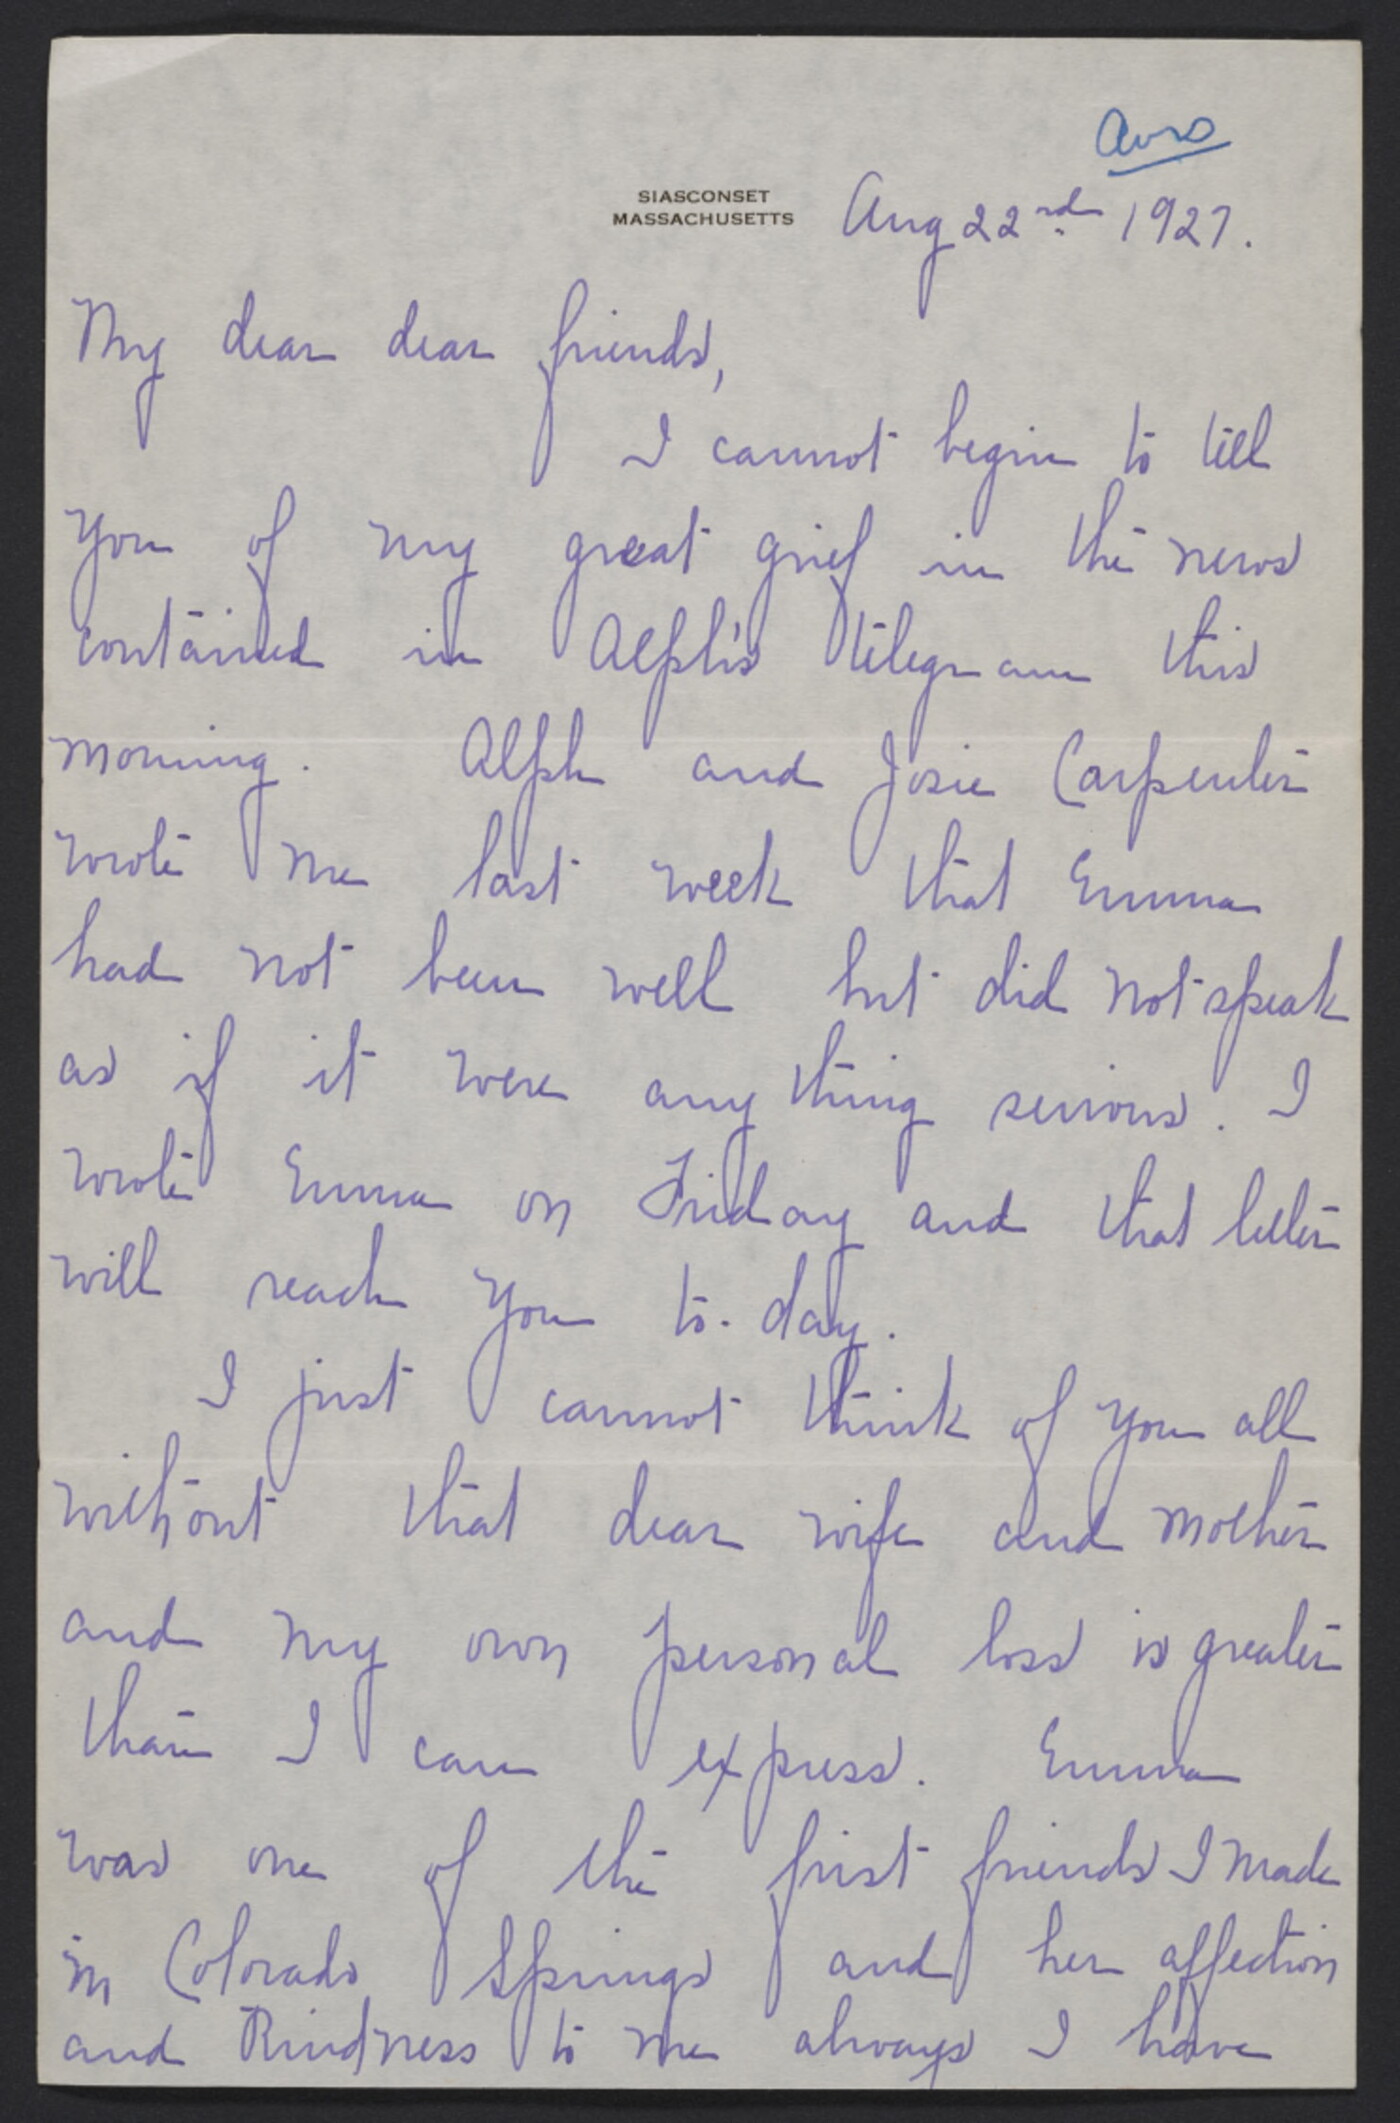 Ans
SIASCONSET
MASSACHUSETTS
Aug 22nd 1927.
My dear dear friends,
I cannot begin to tell
you of my great grief in the news
contained in Alph's telegram this
morning. Alph and Josie Carpenter
wrote me last week that Emma
had not been well but did not speak
as if it were any thing serious. I
wrote Emma on Friday and that letter
will reach you to-day.
I just cannot think of you all
without that dear wife and mother
and my own personal loss is greater
than I can express. Emma
was one of the first friends I made
in Colorado Springs and her affection
and kindness to me always I have